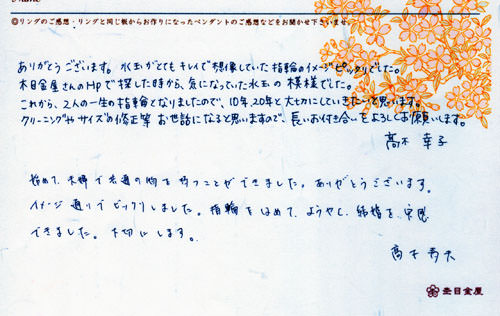 ◎リングのご感想・リングと同じ板からお作りになったペンダントのご感想などをお聞かせ下さいませ。
ありがとうございます。水玉がとてもキレイで想像していた指輪のイメージピッタリでした。
木目金屋さんのHPで探した時から、気になっていた水玉の模様でした。
これから、2人の一生の指輪となりましたので、10年、20年と大切にしていきたいと思います。
クリーニングやサイズの修正等 お世話になると思いますので、長いお付き合いをよろしくお願いします。
高木 幸子
始めて、夫婦で共通の物を持つことができました。ありがとうございます。
イメージ通りでビックリしました。指輪をはめて、ようやく、結婚を実感
できました。大切にします。
高木
杢目金屋